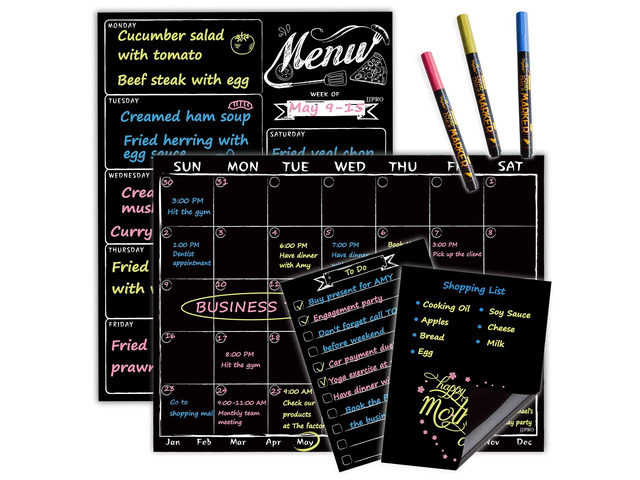 MONDAY
Cucumber salad
with tomato
Beef steak with egg
Menu
WEEK OF
JJPRO
May 9-15
TUESDAY
Creamed ham soup
Fried herring with
egg sauce
SATURDAY
Fried veal chop
WEDNESDAY
Curry
THURSDAY
Fried
with
FRIDAY
Fried
prawn
MARKER
MARKER
MARKER
SUN MON TUE WED THU FRI SAT
30 31 1 7
3:00 PM
Hit the gym
2 3 4 5 6 7 8
1:00 PM
Dentist
appointment
6:00 PM
Have dinner
with Amy
7:00 PM
Have
with
Book
3:00 PM
Pick up the client
9 10 11
BUSINESS
16 17 18
8:00 PM
Hit the gym
23 24 25
Go to
shopping mal
9:00-11:00 AM
Monthly team
meeting
9:00 AM
Check our
products
at The facto
Jan Feb Mar Apr May Nov Dec
To Do
Buy present for AMY
Engagement party
Don't forget call TO
before weekend
Car payment due
Yoga exercise at
Have dinner wi
Book the
the busin
Shopping List
Cooking Oil
Apples
Bread
Egg
Soy Sauce
Cheese
Milk
happy
Moth
ael's
day party
JJPRO